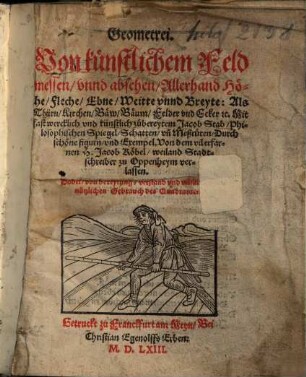 Geometrei.
Von künstlichem Feld
messen / vnnd absehen / Allerhand Hö-
he / Fleche / Ebne / Weitte vnnd Breyte: Als
Thürn / Kirchen / Bäw / Bäum / Felder vnd Ecker ꝛc. Mit
fast wercklich vnd künstlich zůbereytem Jacob Stab / Phi-
losophischen Spiegel / Schatten / vñ Meßrůten. Durch
schöne figurn / vnd Exempel. Von dem vilerfar-
nen H. Jacob Köbel / weiland Stadt-
schreiber zu Oppenheym ver-
lassen.
Gebrauch des Quadranten
Getruckt zu Franckfurt am Meyn / Bei
Christian Egenolffs Erben.
M. D. LXIII.